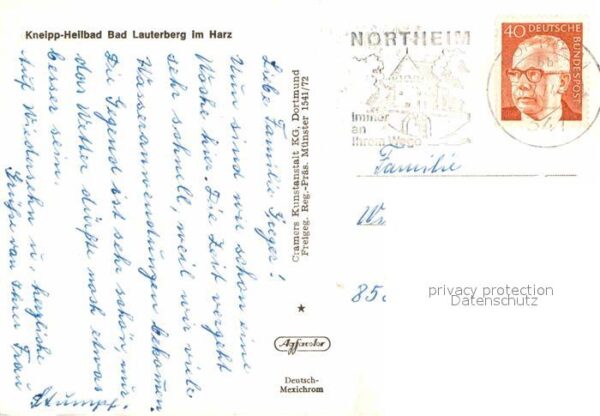 Kneipp-Heilbad Bad Lauterberg im Harz
Liebe Familie Geger!
Nun sind wir schon eine
Woche hier. Die Zeit vergeht
sehr schnell, weil wir viele
Wasseranwendungen bekommen.
Die Gegend ist sehr schön, nur
das Wetter dürfte noch etwas
besser sein.
Auf Wiedersehn u. herzliche
Grüße von Ihrer Frau
Stumpf
Cramers Kunstanstalt KG, Dortmund
Freigeg. Reg.-Präs. Münster 1541/72
Agfacolor
Deutsch-
Mexichrom
NORTHEIM
Immer
an
Ihrem Wege
341
40
DEUTSCHE
BUNDESPOST
Familie
85
privacy protection
Datenschutz